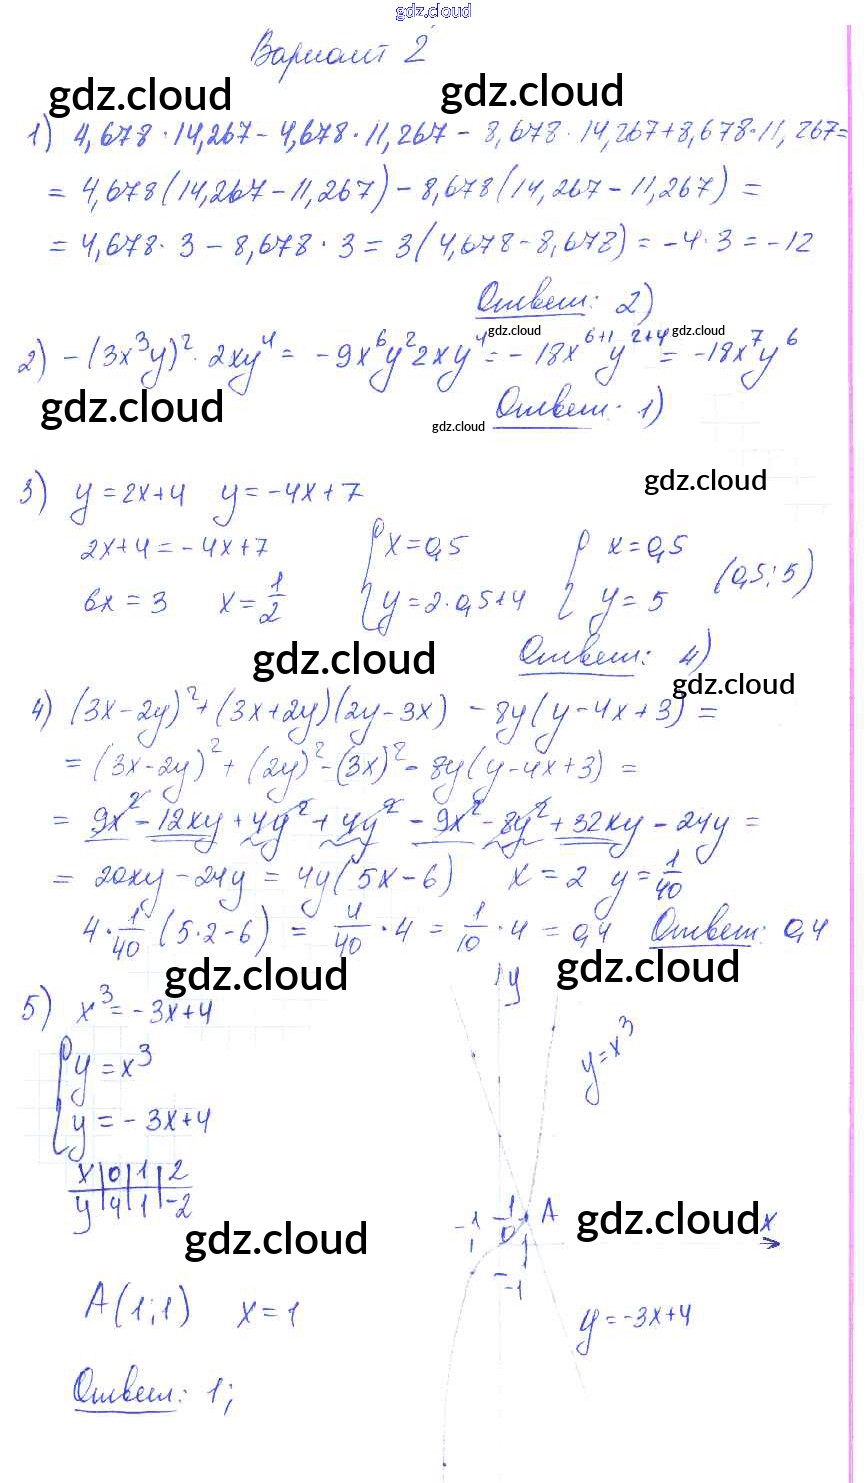 gdz.cloud
Вариант 2
gdz.cloud gdz.cloud
1) 4,678 · 14,267 - 4,678 · 11,267 - 8,678 · 14,267 + 8,678 · 11,267 =
= 4,678(14,267 - 11,267) - 8,678(14,267 - 11,267) =
= 4,678 · 3 - 8,678 · 3 = 3(4,678 - 8,678) = -4 · 3 = -12
Ответ: 2)
gdz.cloud gdz.cloud
2) -(3x³y)² · 2xy⁴ = -9x⁶y²2xy⁴ = -18x⁶⁺¹y²⁺⁴ = -18x⁷y⁶
gdz.cloud
Ответ: 1)
gdz.cloud
gdz.cloud
3) y = 2x + 4 y = -4x + 7
2x + 4 = -4x + 7 { x = 0,5 { x = 0,5
6x = 3 x = 1/2 y = 2 · 0,5 + 4 y = 5 (0,5; 5)
Ответ: 4)
gdz.cloud
gdz.cloud
4) (3x - 2y)² + (3x + 2y)(2y - 3x) - 8y(y - 4x + 3) =
= (3x - 2y)² + (2y)² - (3x)² - 8y(y - 4x + 3) =
= 9x² - 12xy + 4y² + 4y² - 9x² - 8y² + 32xy - 24y =
= 20xy - 24y = 4y(5x - 6) x = 2 y = 1/40
4 · 1/40 (5 · 2 - 6) = 4/40 · 4 = 1/10 · 4 = 0,4 Ответ: 0,4
gdz.cloud gdz.cloud
5) x³ = -3x + 4
{ y = x³
y = -3x + 4
x 0 1 2
y 4 1 -2
gdz.cloud
A(1; 1) x = 1
Ответ: 1;
y
y = x³
-1 1 A gdz.cloud x
0 1
-1
y = -3x + 4